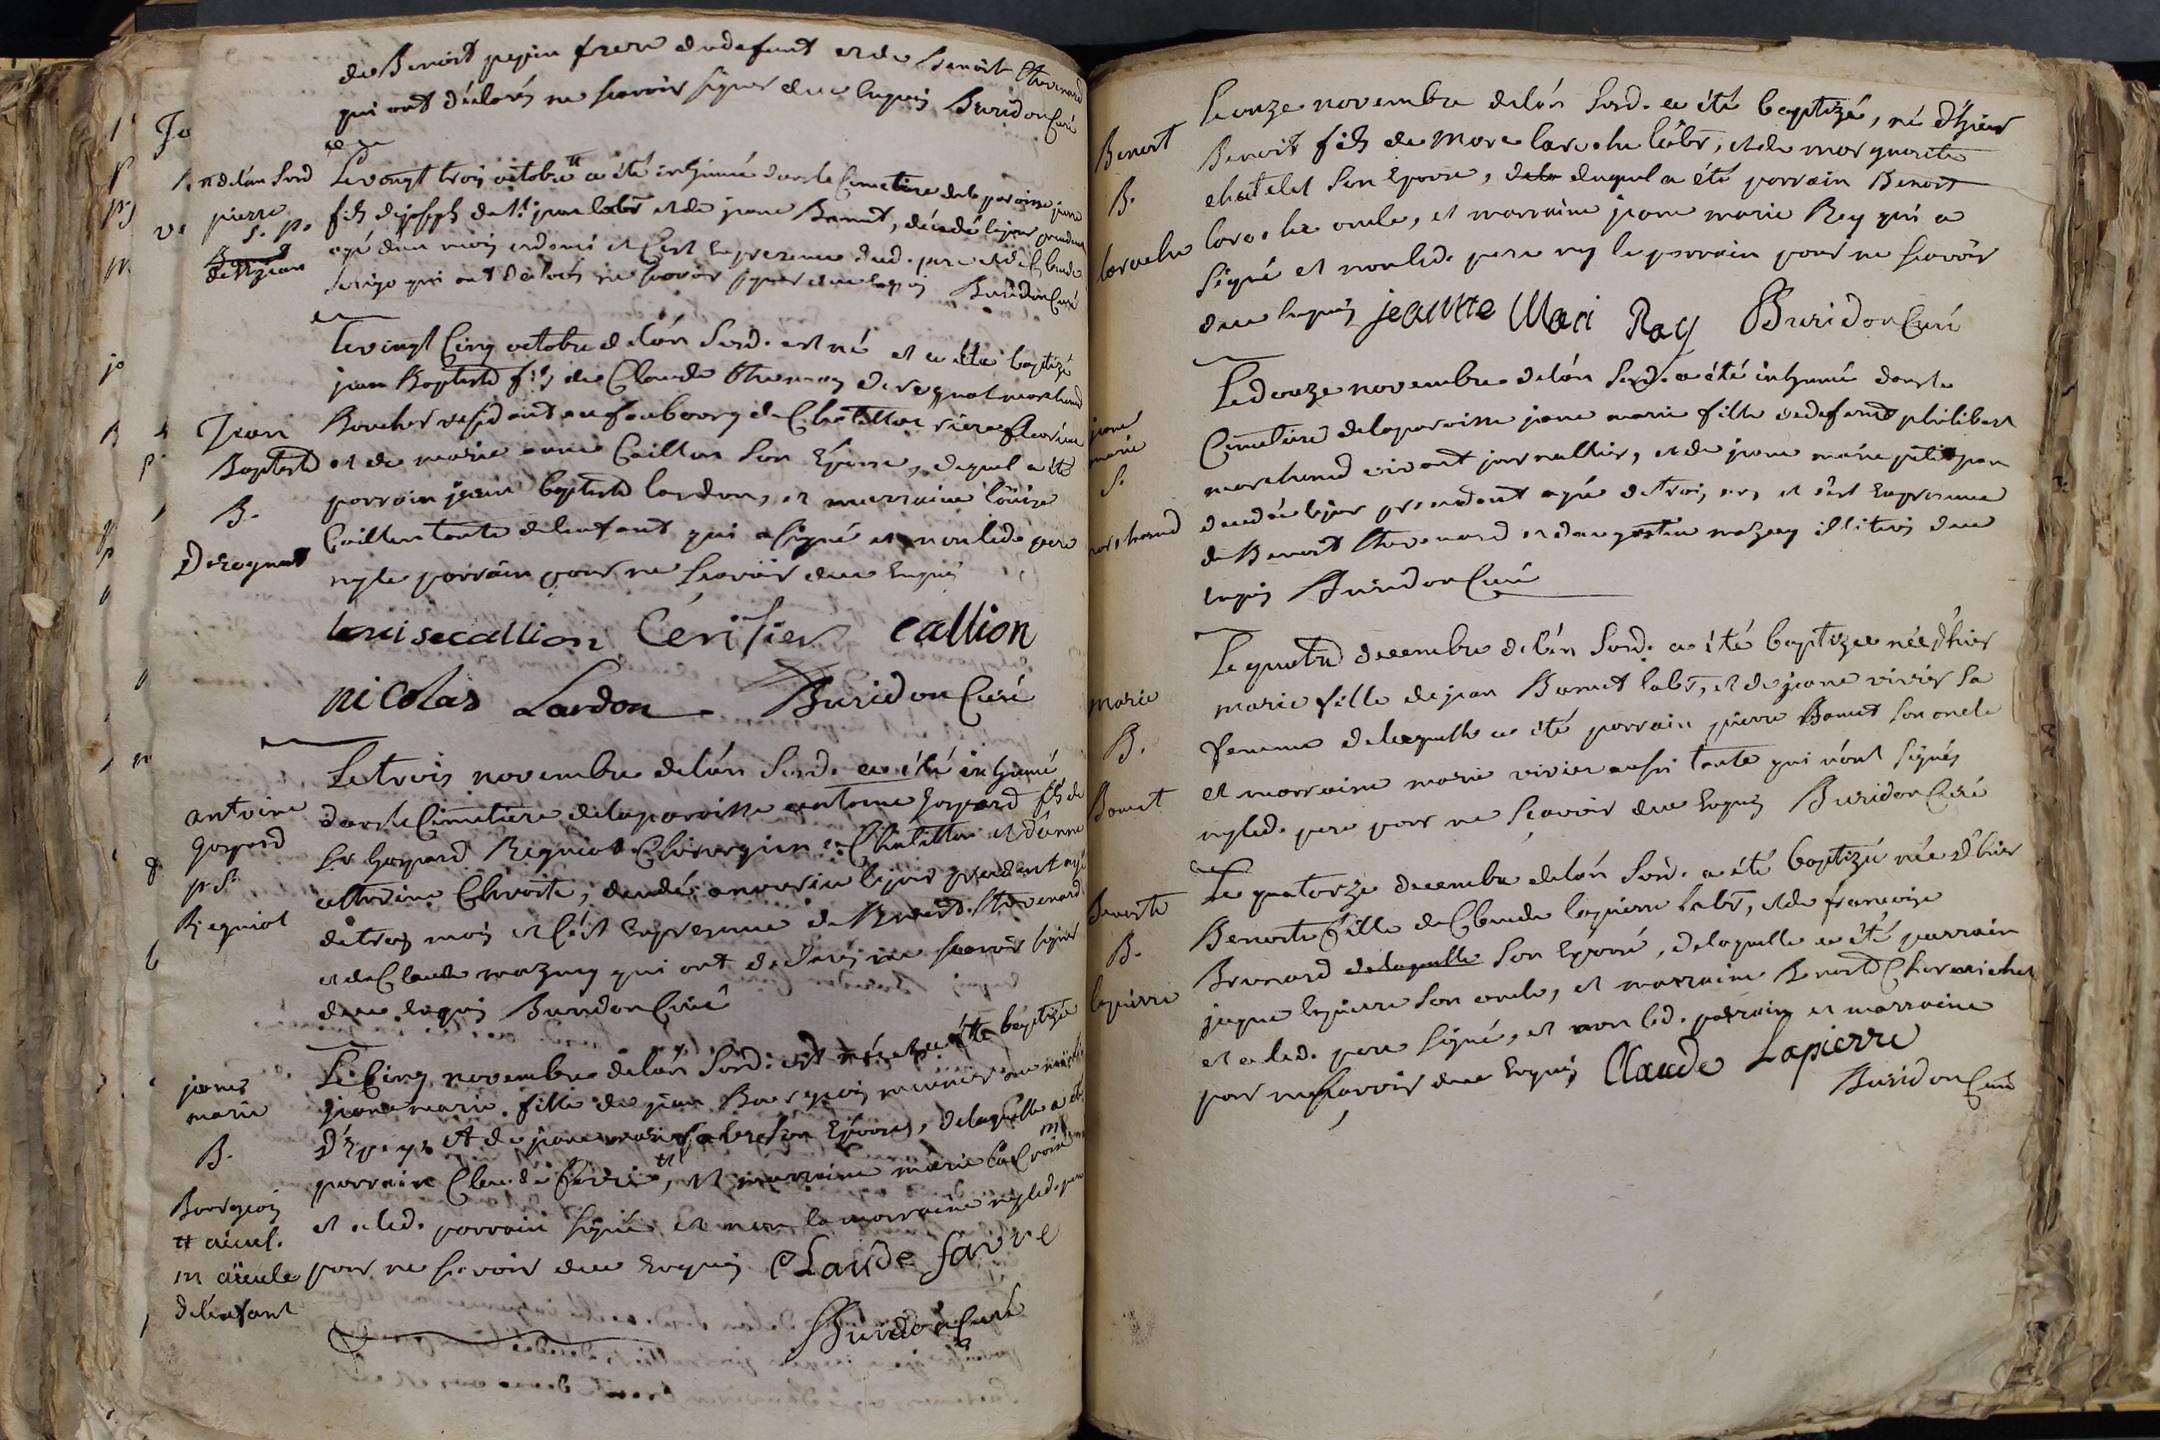 de Benoit pepin frere dudefunt et de Benoit Thevenard
qui ont déclarés ne scavoir signer de ce enquis Buridon Curé
π delán susd
pierre
s. p.
de St jean
Le vingt trois octobre π a été inhumé dans le Cimetiere de la paroisse jean
fils de joseph de St jean labr et de jeane Bonnet, décédé le jour precedent
agé d'un mois et demi et c'est en presence dud. pere et de Claude
qui ont declarés ne scavoir signer de ce enquis Buridon Curé
Le vingt Cinq octobre de lán susd. est né et a été baptizé
jean Baptiste fils de Claude Derognat marchand
Boucher residant au faubourg de Chatillon
Jean
Baptiste
B.
Derognat
et de marie anne Caillon son Epouse, duquel a été
parrain jean baptiste lardon, et marraine loüise
Caillon tante de l'enfant qui a signé et non led. pere
ny le parrain pour ne scavoir de ce enquis
louise callion Cerisier callion
nicolas Lardon Buridon Curé
antoine
gaspard
p. s.
Requiot
Le trois novembre de lán susd. a été inhumé
dans le Cimetiere de la paroisse antoine gaspard fils de
Sr gaspard Requiot Chirurgien a Chatillon et d'anne
Chevrote, decedé en nourrice le jour precedent agé
de trois mois et c'ést en presence de Benoit Thevenard
et de Claude mazuy qui ont declarés ne scavoir signer
de ce enquis Buridon Curé
jeane
marie
B.
Bourgeois
π aieul.
m aïeule
de l'enfant
Le Cinq novembre de lán susd. est née et a été baptizée
jeane marie fille de jean Bourgeois meunier au moulin
et de jeane marie son Epouse, de laquelle a été
parrain Claude π, et marraine marie m
et a led. parrain signé et non la marraine ny led. pere
pour ne scavoir de ce enquis Claude favre
Buridon Curé
Benoit
B.
laroche
Le onze novembre de lán susd. a été baptizé, né d'hier
Benoit fils de Marc laroche labr, et de marguerite
chatelet son Epouse, dela duquel a été parrain Benoit
laroche oncle, et marraine jeane marie Rey qui a
signé et non led. pere ny le parrain pour ne scavoir
de ce enquis jeanne Mari Ray Buridon Curé
jeane
marie
S.
marchand
Le douze novembre de lán susd. a été inhumé dans le
Cimetiere de la paroisse jeane marie fille de defunt philibert
marchand vivant journallier, et de jeane marie petitjean
decedée le jour precedent agée de trois ans et c'est en presence
de Benoit Thevenard et d'augustin mazuy illiterés de ce
enquis Buridon Curé
marie
B.
Bonnet
Le quatre decembre de lán susd. a été baptizee née d'hier
marie fille de jean Bonnet labr, et de jeane vivier sa
femme de laquelle a été parrain pierre Bonnet son oncle
et marraine marie vivier aussi tante qui n'ont signés
ny led. pere pour ne scavoir de ce enquis Buridon Curé
Benoite
B.
lapierre
Le quatorze decembre de lán susd. a été baptizée née d'hier
Benoite fille de Claude lapierre labr, et de francoise
Brunard delaquelle son Epouse, de laquelle a été parrain
jaque lapierre son oncle, et marraine Benoite
et a led. pere signé, et non led. parrain et marraine
pour ne scavoir de ce enquis Claude Lapierre
Buridon Curé